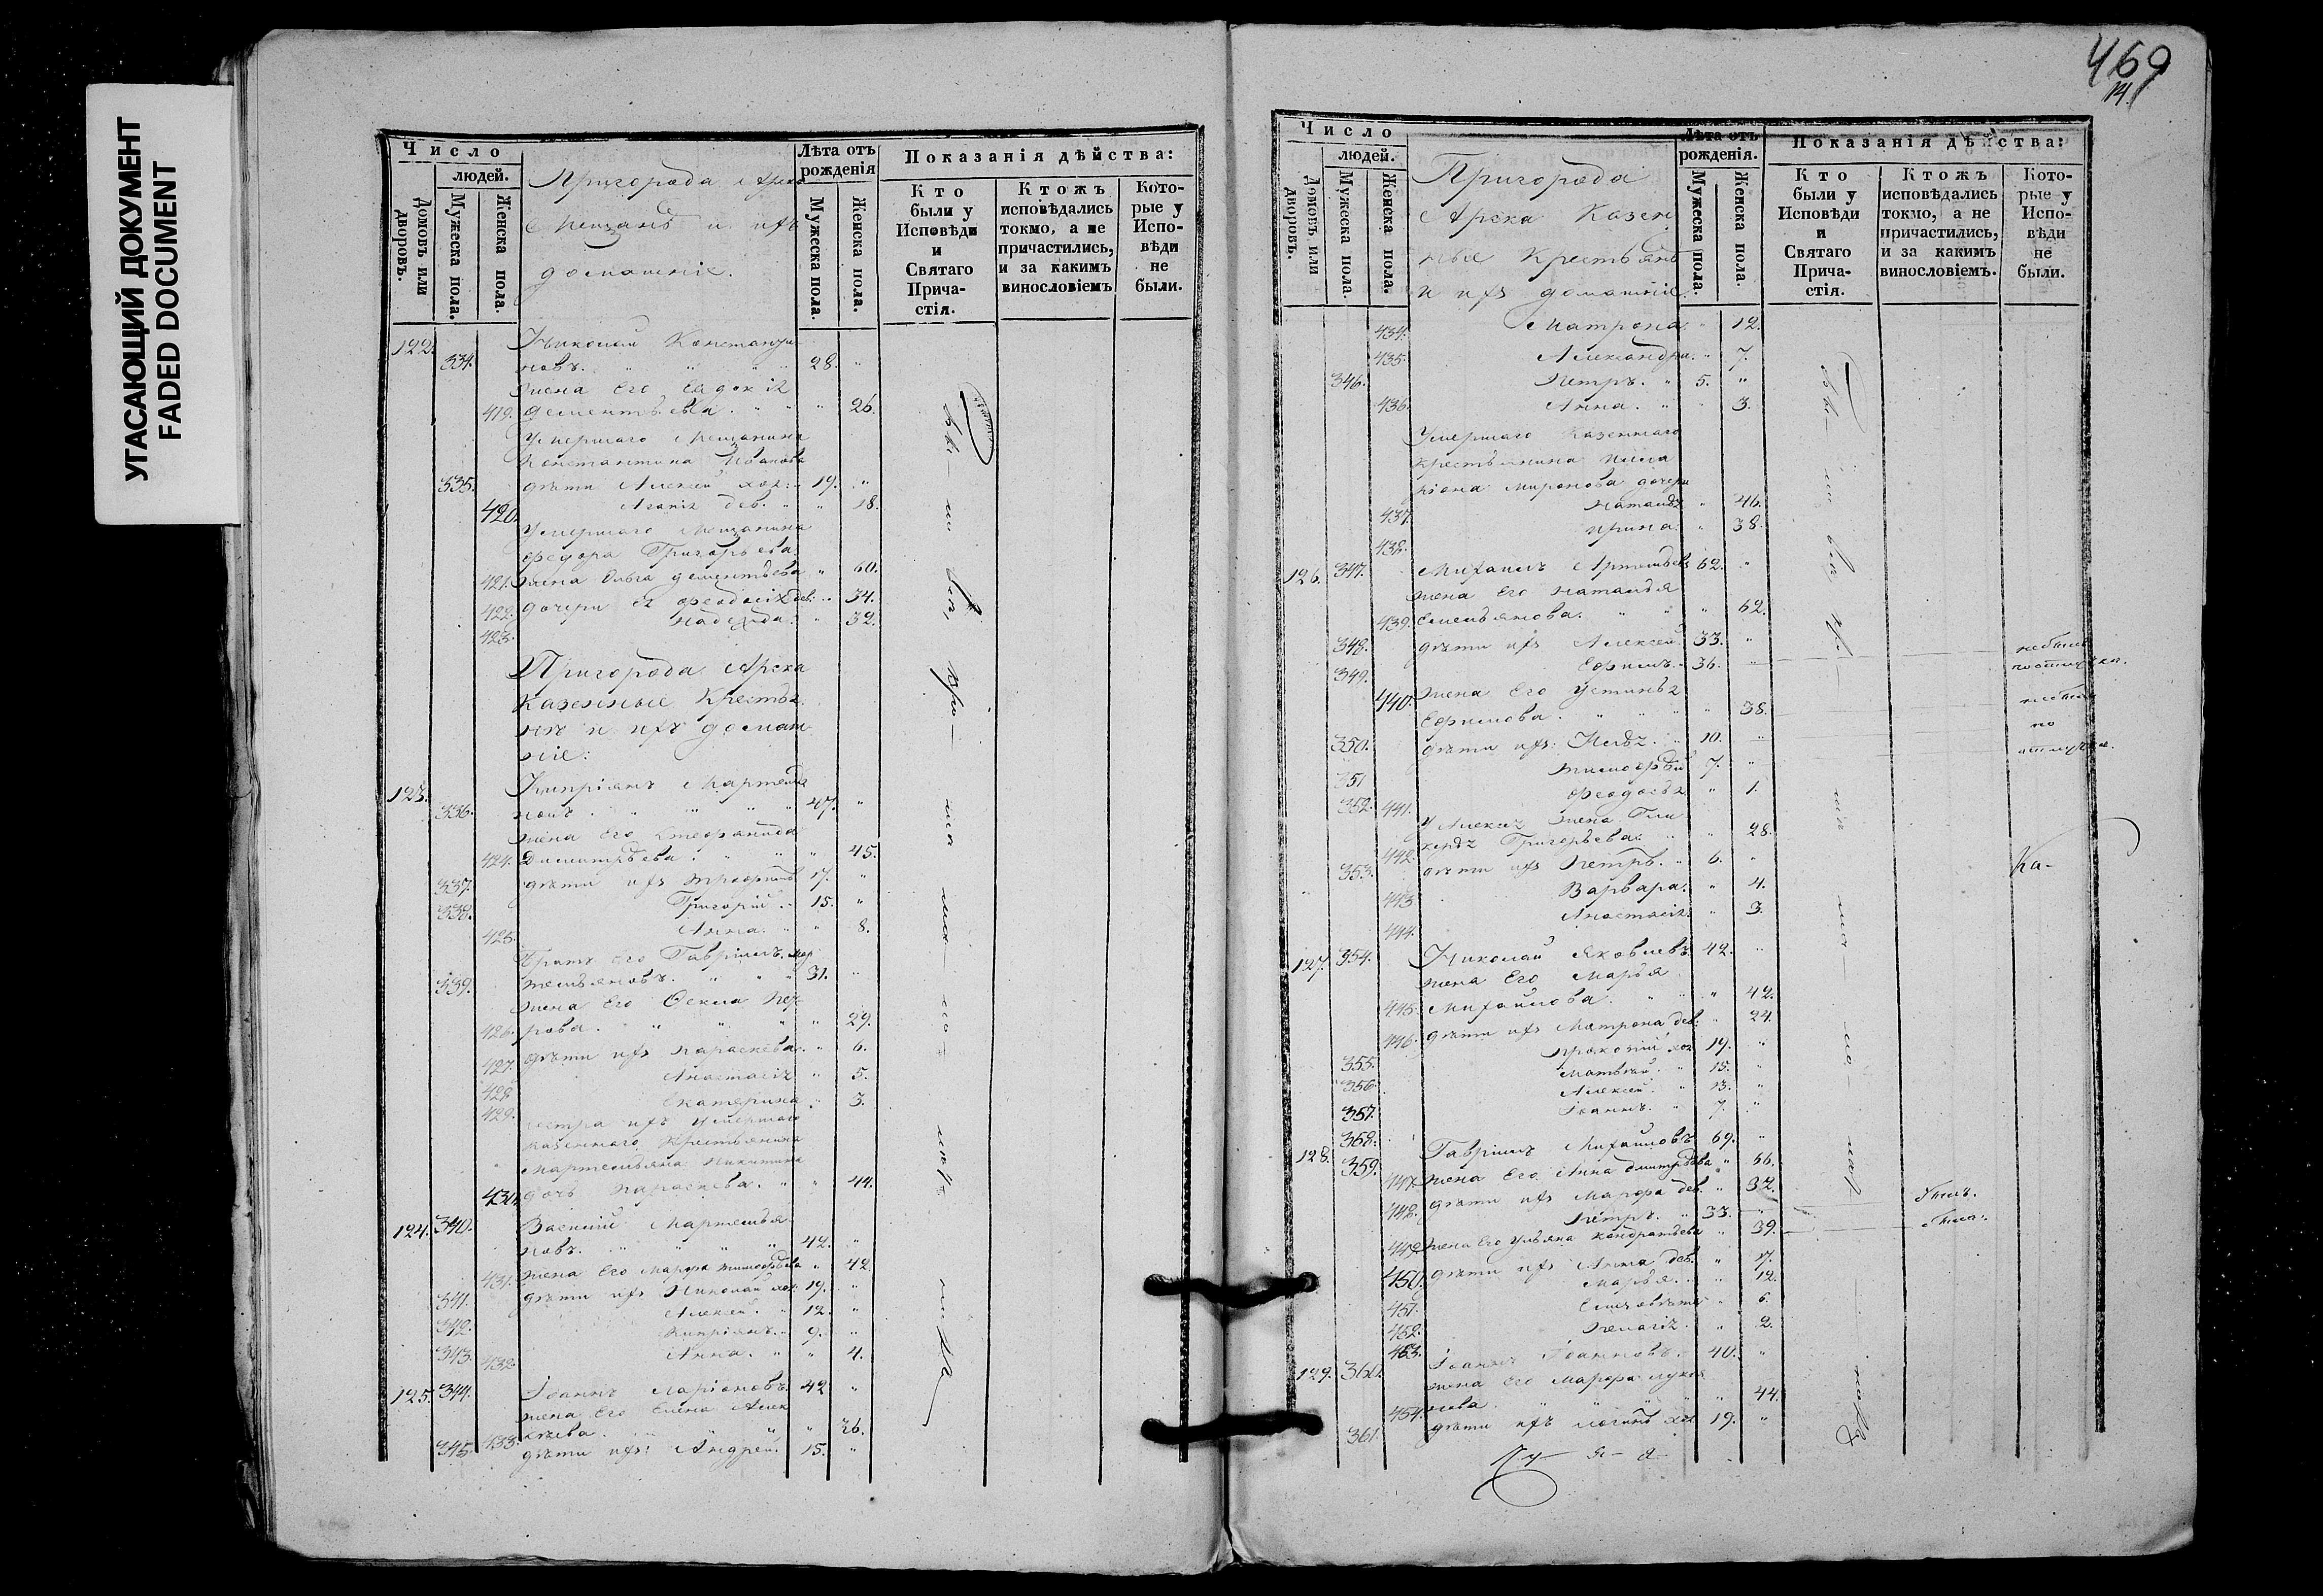 УГАСАЮЩИЙ ДОКУМЕНТ
FADED DOCUMENT
Число
людей.
Домовъ или дворовъ.
Мужеска пола.
Женска пола.
Пригорода Арска
Мещане и ихъ
домашніе.
Лѣта отъ рожденія
Мужеска пола.
Женска пола.
Показанія дѣйства:
Кто были у Исповѣди и Святаго Прича-стія.
Ктожъ исповѣдались токмо, а не причастились, и за какимъ винословіемъ
Кото-рые у Испо-вѣди не были.
122.
334. Николай Константи
новъ. 28. "
жена Его Евдокія
419. Дементьева. " 26.
Умершаго Мещанина
Константина Иванова
335. дѣти Алексей хол: 19. "
420. Агапія дев. " 18.
Умершаго Мещанина
Федора Григорьева
421. жена Ольга дементьева " 60.
422. дочери ея Феодосія дев: " 34.
423. Надежда. " 32.
Пригорода Арска
Казенные Крестья
не и ихъ домаш
ніе:
123. Кипріянъ Мартемья
336. новъ. 47. "
жена Его Стефанида
424. Димитрьева. " 45.
337. дѣти ихъ Трофимъ 17. "
338. Григорій. 15. "
425. Анна. " 8.
Братъ его Гавріилъ Мар
339. темьяновъ. 31. "
жена Его Фекла Пет
426. рова. " 29.
427. дѣти ихъ Параскева. " 6.
428. Анастасія " 5.
429. Екатерина " 3.
сестра ихъ Умершаго
Казеннаго Крестьянина
Мартемьяна Никитина
430. дочь Параскева. " 44.
124. 340. Василій Мартемья
новъ. 42. "
431. жена Его Марфа тимофѣева " 42.
341. дѣти ихъ Николай хол: 19. "
342. Алексей. 12. "
343. Кипріянъ. 9. "
432. Анна. " 4.
125. 344. Іоаннъ Ларіоновъ. 42 "
жена Его Елена Алек
433. сѣева. " 36.
345. дѣти ихъ: Андрей. 15. "
469
14.
Число
людей.
Домовъ или дворовъ.
Мужеска пола.
Женска пола.
Пригорода
Арска Казен
ные Крестьяне
и ихъ домашніе.
Лѣта отъ рожденія.
Мужеска пола.
Женска пола.
Показанія дѣйства:
Кто были у Исповѣди и Святаго Прича-стія.
Ктожъ исповѣдались токмо, а не причастились, и за какимъ винословіемъ.
Кото-рые у Испо-вѣди не были.
434. Матрона. " 12.
435. Александра. " 7.
346. Петръ. " 5. "
436. Анна. " 3.
Умершаго Казеннаго
крестьянина
Миронова дочери
437. Наталья " 46.
438. Ирина. " 38.
126. 347. Михаилъ Артемьевъ 62. "
жена Его Наталья
439. Емельянова. " 62.
348. дѣти ихъ Алексей 33. "
небылъ
349. Ефимъ. 36. "
по отлучке.
440. жена Его Устинья
Ефимова. " 38.
небыли
по
отлучке.
350. дѣти ихъ: Илья. 10. "
351 тимофей 7. "
352. 441. Феодосья " 1.
У Алексея жена Гли
442. керья Григорьева. " 28.
353. дѣти ихъ Петръ. " 6. "
443. Варвара. " 4.
444. Анастасія. " 3.
127. 354. Николай Яковлевъ 42. "
жена Его Марья
445. Михайлова. " 42.
446. дѣти ихъ Матрона дев: " 24.
355. Прокопій хол 19. "
356. Матвей. " 15. "
357. Алексей. " 13. "
358. Іоаннъ. " 7. "
128. 359. Гавріилъ Михайловъ 69. "
447. жена Его Анна Дмитрьева " 66.
448. дѣти ихъ Марфа дев. " 32.
Петръ. " 33. "
449. жена Его Ульяна Кондратьева " 39.
450. дѣти ихъ Анна дев. " 17.
451. Марья. " 12.
452. Елисавета " 6.
453. Пелагія. " 2.
129. 360. Іоаннъ Іоанновъ. 40. "
жена Его Марфа Лукоя
454. нова " 44.
361. дѣти ихъ Логинъ хол 19. "